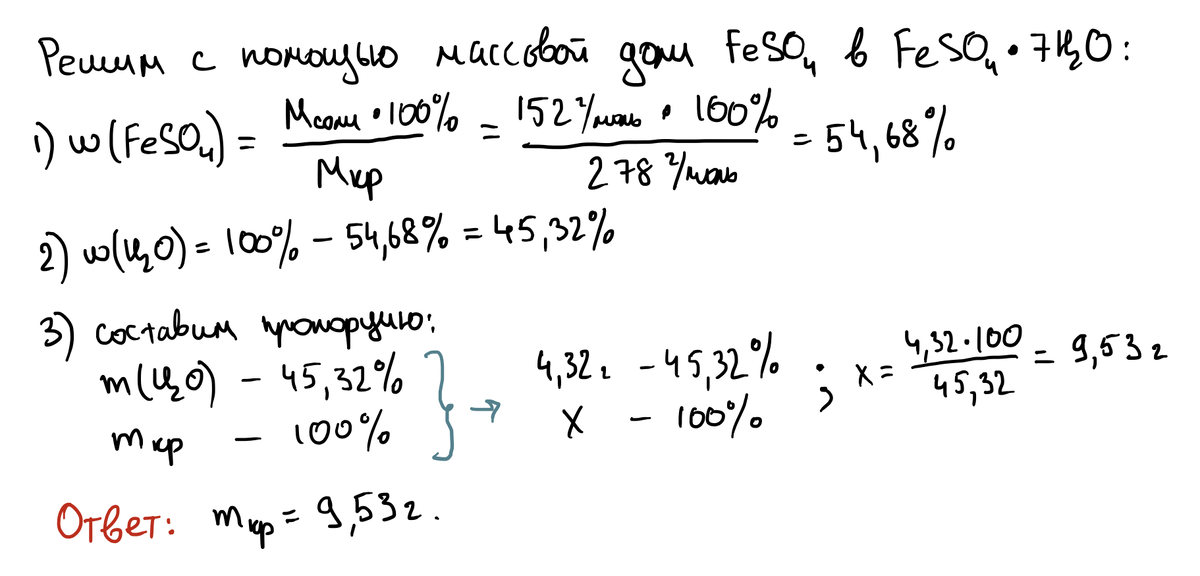 Решим с помощью массовой доли FeSO₄ в FeSO₄ • 7H₂O:
1) w(FeSO₄) = Mсоли • 100% / Mкр = 152 г/моль • 100% / 278 г/моль = 54,68%
2) w(H₂O) = 100% – 54,68% = 45,32%
3) составим пропорцию:
m(H₂O) – 45,32% } → 4,32 г – 45,32% ; x = 4,32 • 100 / 45,32 = 9,53 г
mкр – 100% X – 100%
Ответ: mкр = 9,53 г.